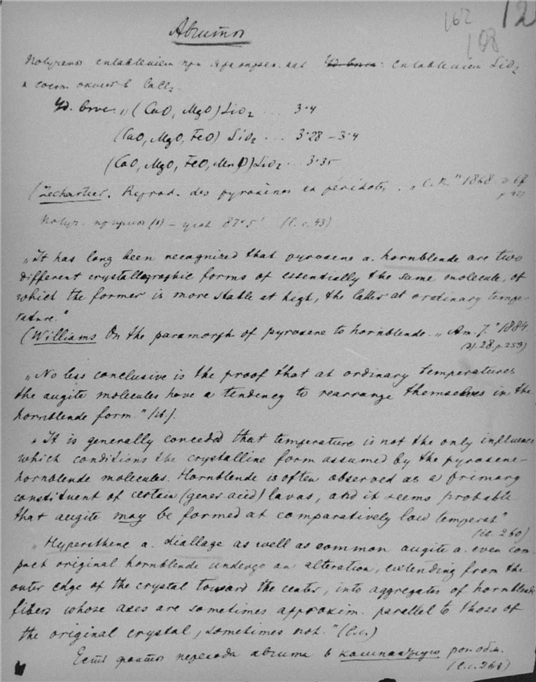 162 12
108
Авгит
Получение сплавлением при
сплавлением SiO₂
и соотв. окислов CaCl₂.
Уд. вес „ (CaO, MgO) SiO₂ ... 3·4
(CaO, MgO, FeO) SiO₂ ... 3·28 – 3·4
(CaO, MgO, FeO, MnO) SiO₂ ... 3·35
(Lechartier. Reprod. des pyroxènes et péridots. „C. R." 1868
Получ. – угол 87°5' (l. c. 43)
„It has long been recognized that pyroxene a. hornblende are two
different crystallographic forms of essentially the same molecule, of
which the former is more stable at high, the latter at ordinary tempe-
rature."
(Williams On the paramorph of pyroxene to hornblende. „Am. J." 1884.
(3). 28. p. 259)
„No less conclusive is the proof that at ordinary temperatures
the augite molecules have a tendency to rearrange themselves in the
hornblende form." (id.).
„It is generally conceded that temperature is not the only influence
which conditions the crystalline form assumed by the pyroxene-
hornblende molecules. Hornblende is often observed as a primary
constituent of certain (genes acid) lavas, and it seems probable
that augite may be formed at comparatively low temperat."
(id. 260)
„Hypersthene a. diallage as well as common augite a. even com-
pact original hornblende undergo an alteration, extending from the
outer edge of the crystal toward the center, into aggregates of hornblende
fibers whose axes are sometimes approxim. parallel to those of
the original crystal, sometimes not." (l. c.)
Есть факты перехода авгита в компактную рог. обм.
(l. c. 261)